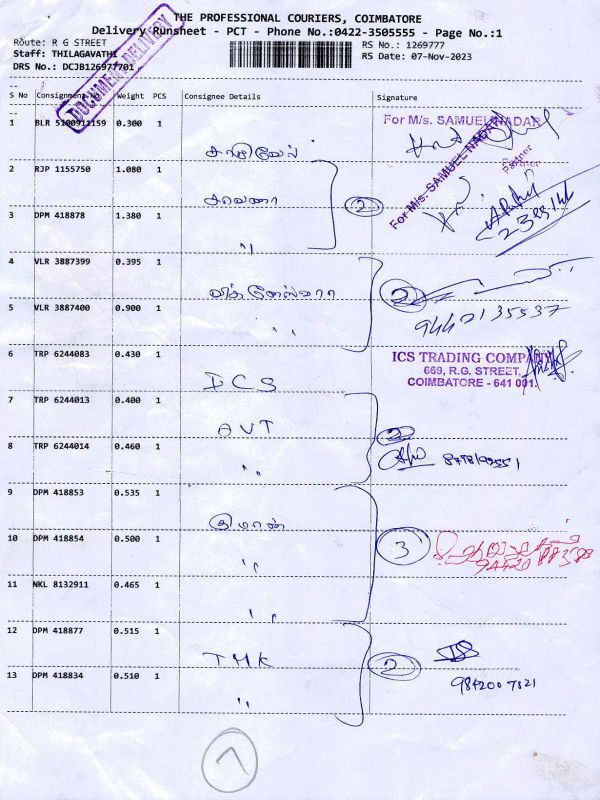 THE PROFESSIONAL COURIERS, COIMBATORE
Delivery Runsheet - PCT - Phone No.:0422-3505555 - Page No.:1
Route: R G STREET
RS No.: 1269777
Staff: THILAGAVATHI
RS Date: 07-Nov-2023
DRS No.: DCJB126977701
DOCUMENT DELIVERY
S No Consignment No Weight PCS Consignee Details Signature
1 BLR 5100911159 0.300 1
For M/s. SAMUEL NADAR
Partner
2 RJP 1155750 1.080 1 சரவணா 2
For M/s. SAMUEL NADAR
Partner
3 DPM 418878 1.380 1 "
4 VLR 3887399 0.395 1 விக்னேஸ்வரா 2
5 VLR 3887400 0.900 1 "
9442135537
6 TRP 6244083 0.430 1 ICS
ICS TRADING COMPANY
669, R.G. STREET,
COIMBATORE - 641 001.
7 TRP 6244013 0.400 1 AVT 2
8 TRP 6244014 0.460 1 "
9 DPM 418853 0.535 1
10 DPM 418854 0.500 1 " 3
11 NKL 8132911 0.465 1 "
12 DPM 418877 0.515 1 TMK 2
13 DPM 418834 0.510 1 "
9842007321
7